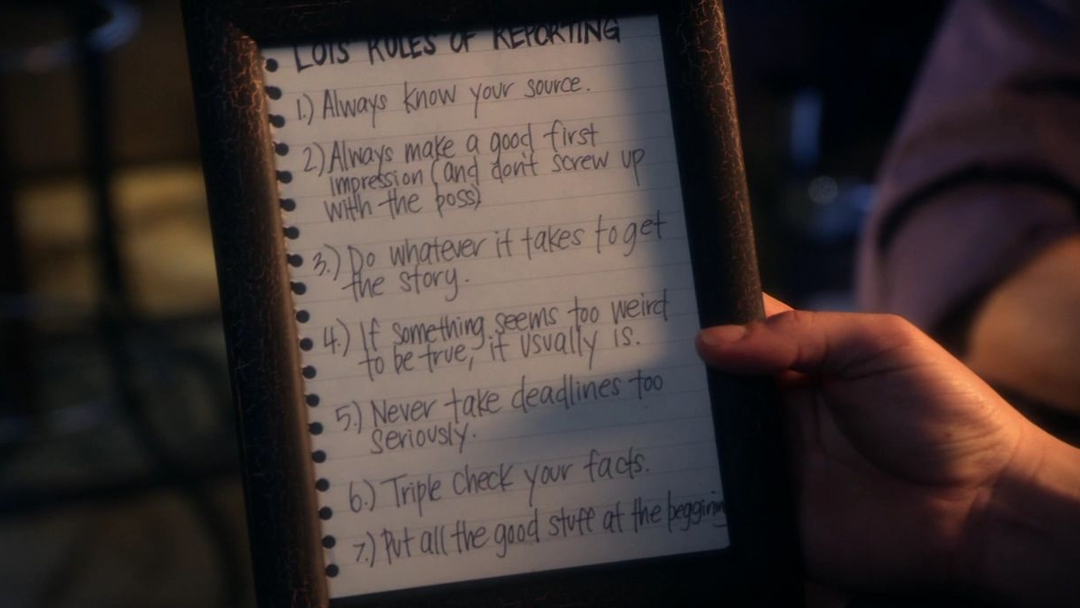 LOIS RULES OF REPORTING
1.) Always know your source.
2) Always make a good first
impression (and don't screw up
with the boss)
3.) Do whatever it takes to get
the story.
4.) If something seems too weird
to be true, it usually is.
5.) Never take deadlines too
seriously.
6.) Triple check your facts.
7.) Put all the good stuff at the beggining